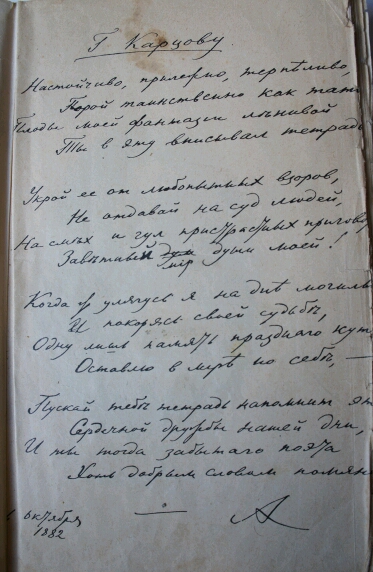 Г. Карцову.
Настойчиво, прилежно, терпѣливо,
Порой таинственно как тать
Плоды моей фантазии лѣнивой
Ты в эту вписывал тетрадь
Укрой ее от любопытных взоров,
Не отдавай на суд людей,
На смѣх и гул пристрастных приговор
Завѣтный мір души моей!
Когда улягусь я на днѣ могилы
И покорясь своей судьбѣ,
Одну лишь память празднаго кут
Оставлю в мірѣ по себѣ, —
Пускай тебѣ тетрадь напомнит эт
Сердечной дружбы нашей дни,
И ты тогда забытаго поэта
Хоть добрым словом помян
октября
1882
А